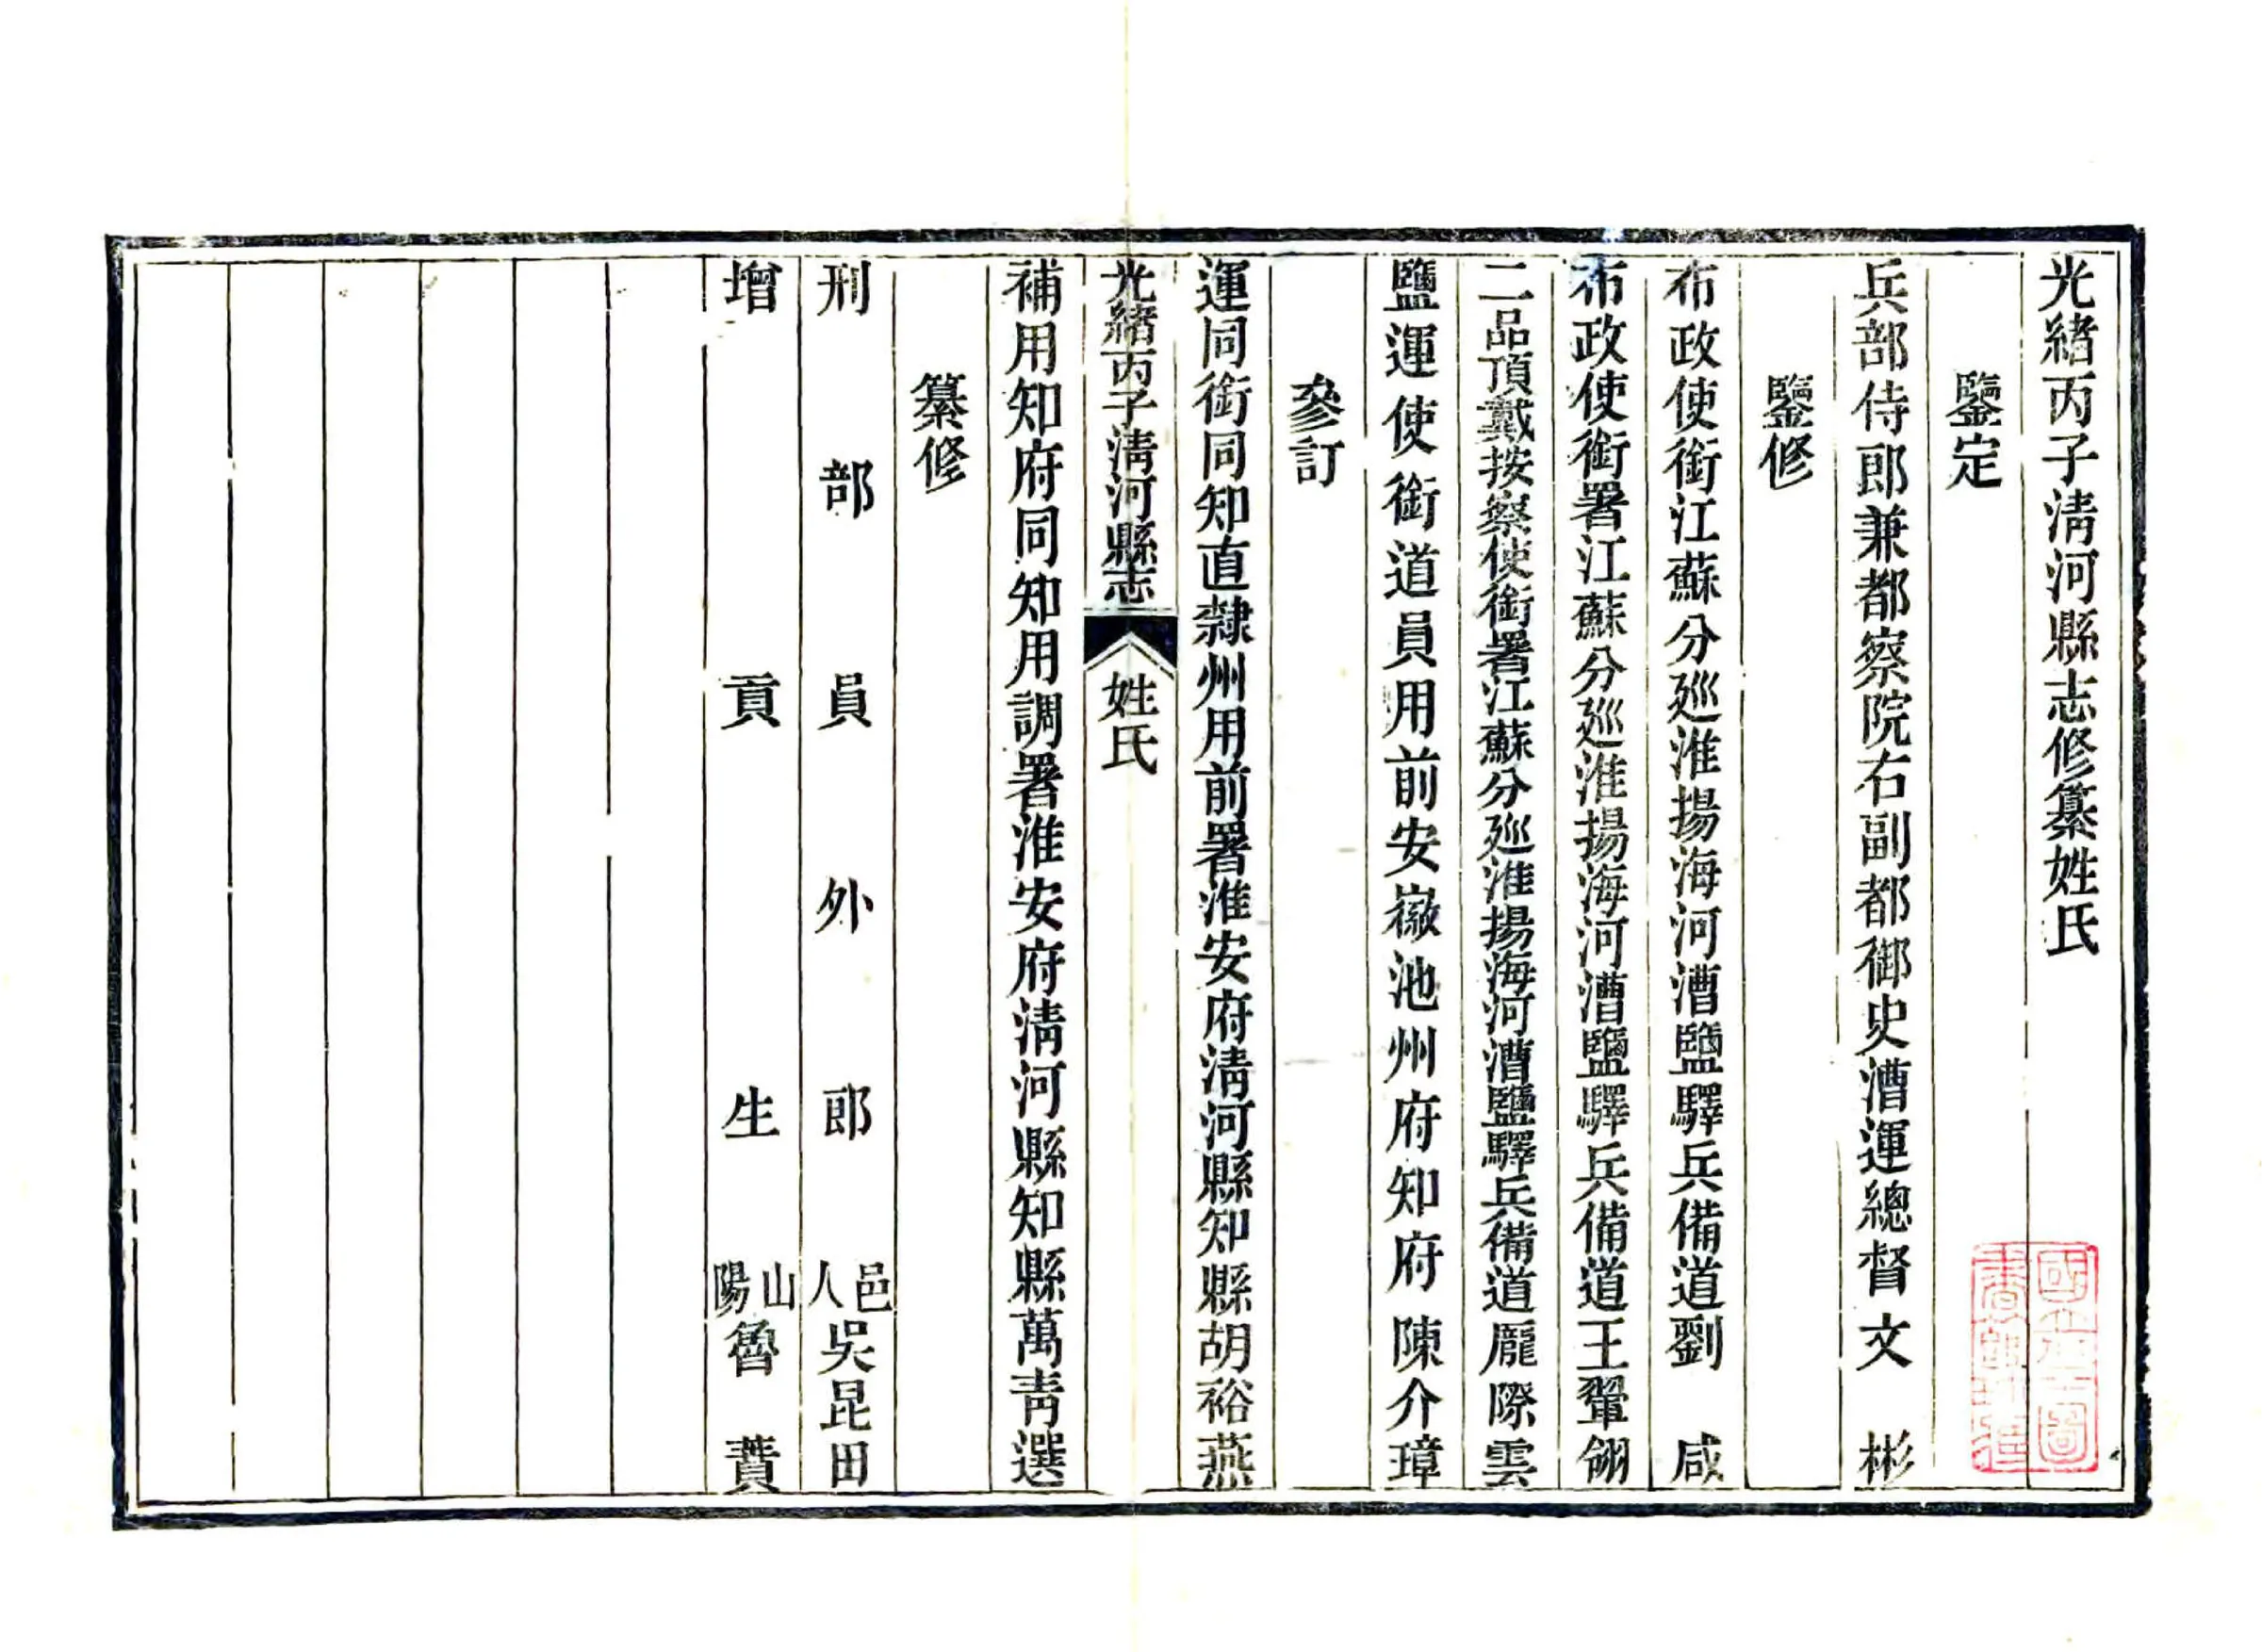 光緒丙子淸河縣志修纂姓氏
鑒定
兵部侍郎兼都察院右副都御史漕運總督文彬
鑒修
布政使銜江蘇分廵淮揚海河漕鹽驛兵備道劉咸
布政使銜署江蘇分廵淮揚海河漕鹽驛兵備道王翬翎
二品頂戴按察使銜署江蘇分廵淮揚海河漕鹽驛兵備道龎際雲
鹽運使銜道員用前安徽池州府知府陳介璋
參訂
運同銜同知直隸州用前署淮安府淸河縣知縣胡裕燕
光緒丙子淸河縣志 姓氏
補用知府同知用調署淮安府淸河縣知縣萬靑選
纂修
刑部員外郎邑人吳昆田
增貢生山陽魯蕡